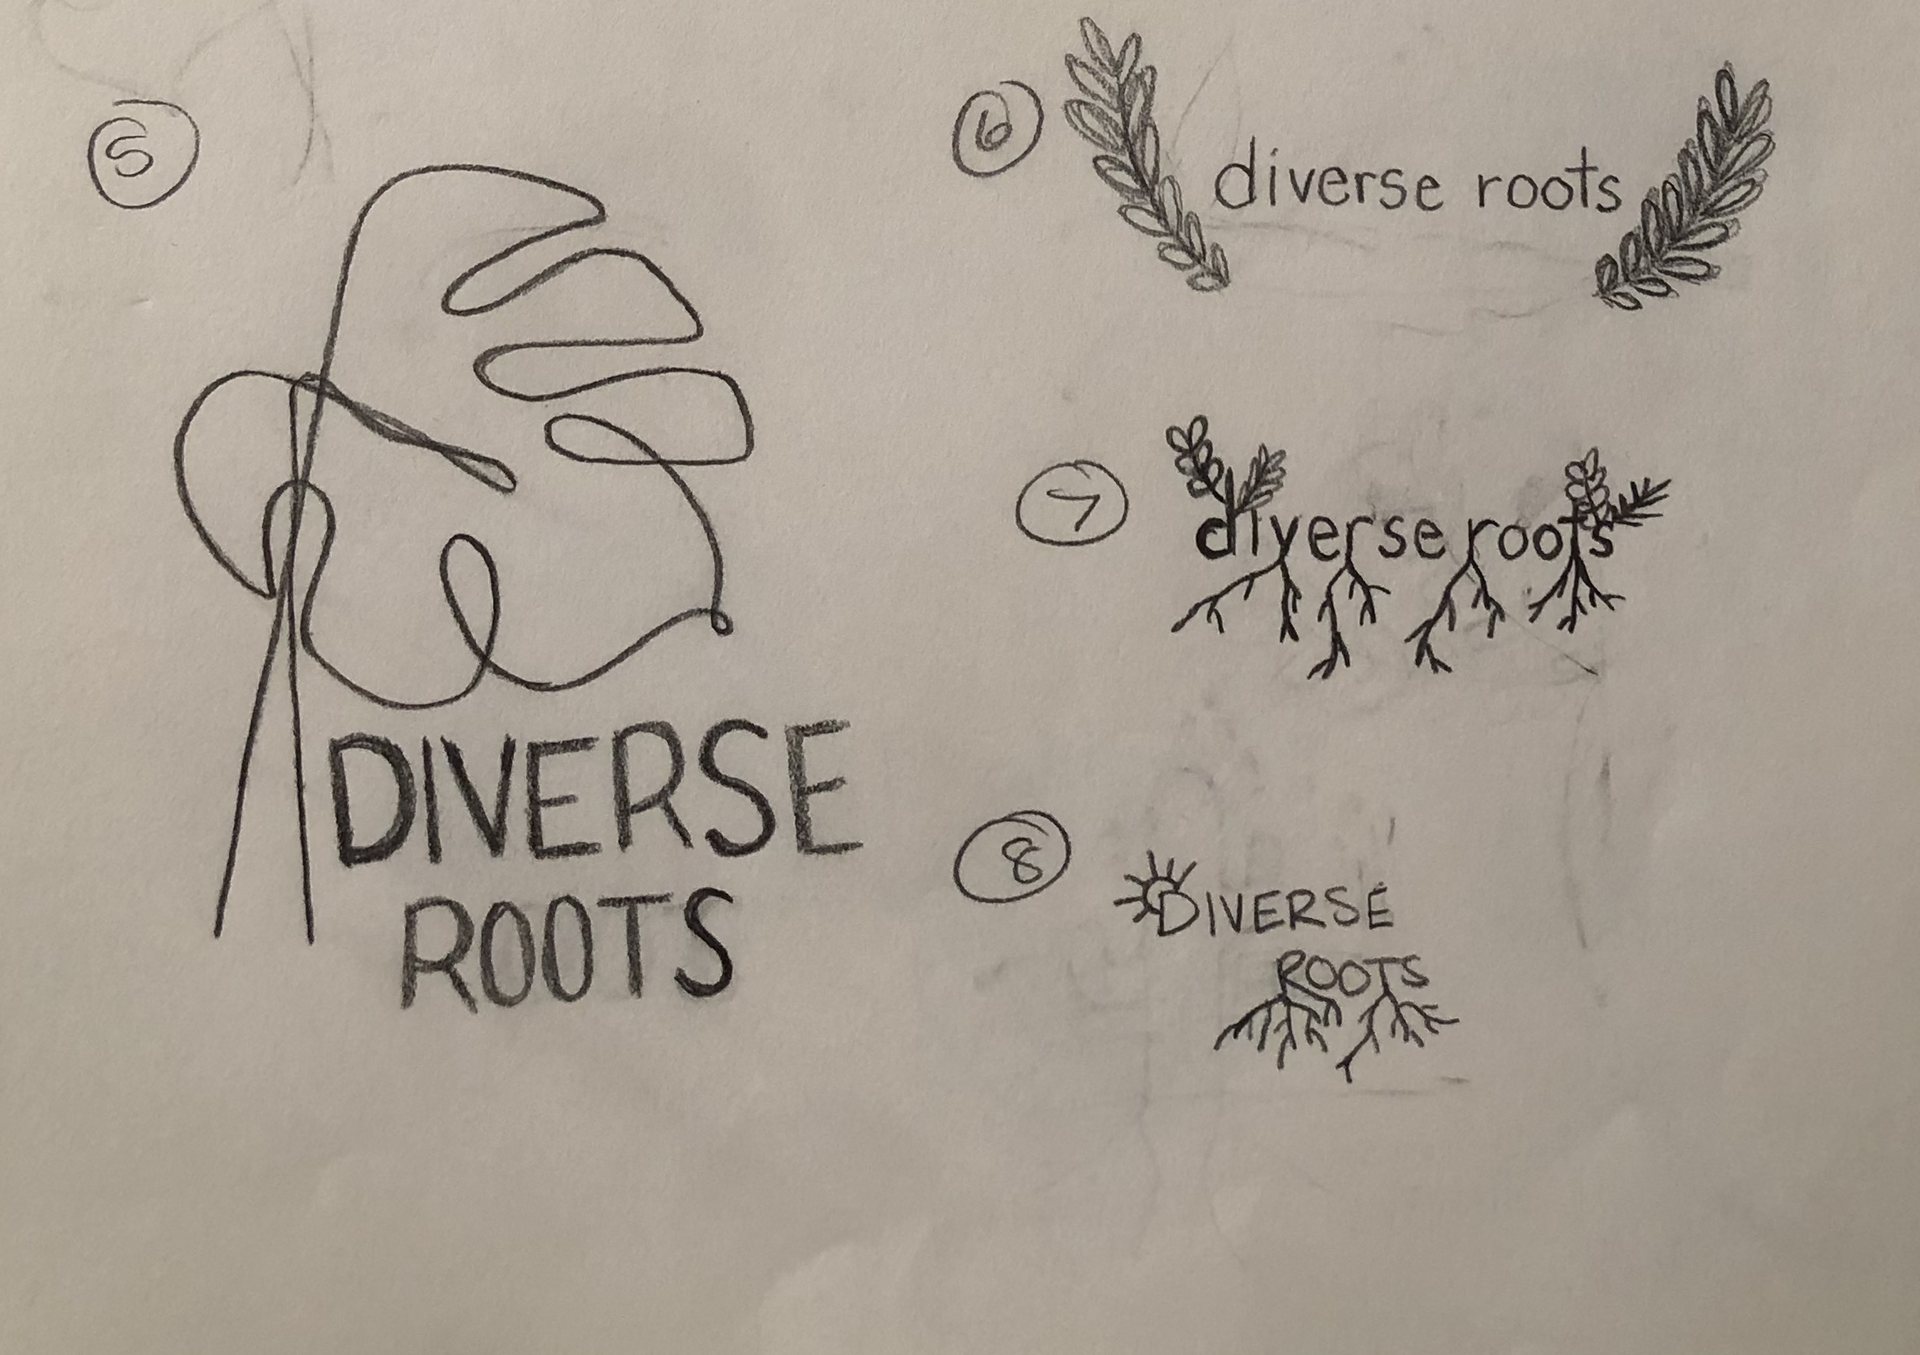 5
DIVERSE
ROOTS
6
diverse roots
7
diverse roots
8
DIVERSE
ROOTS